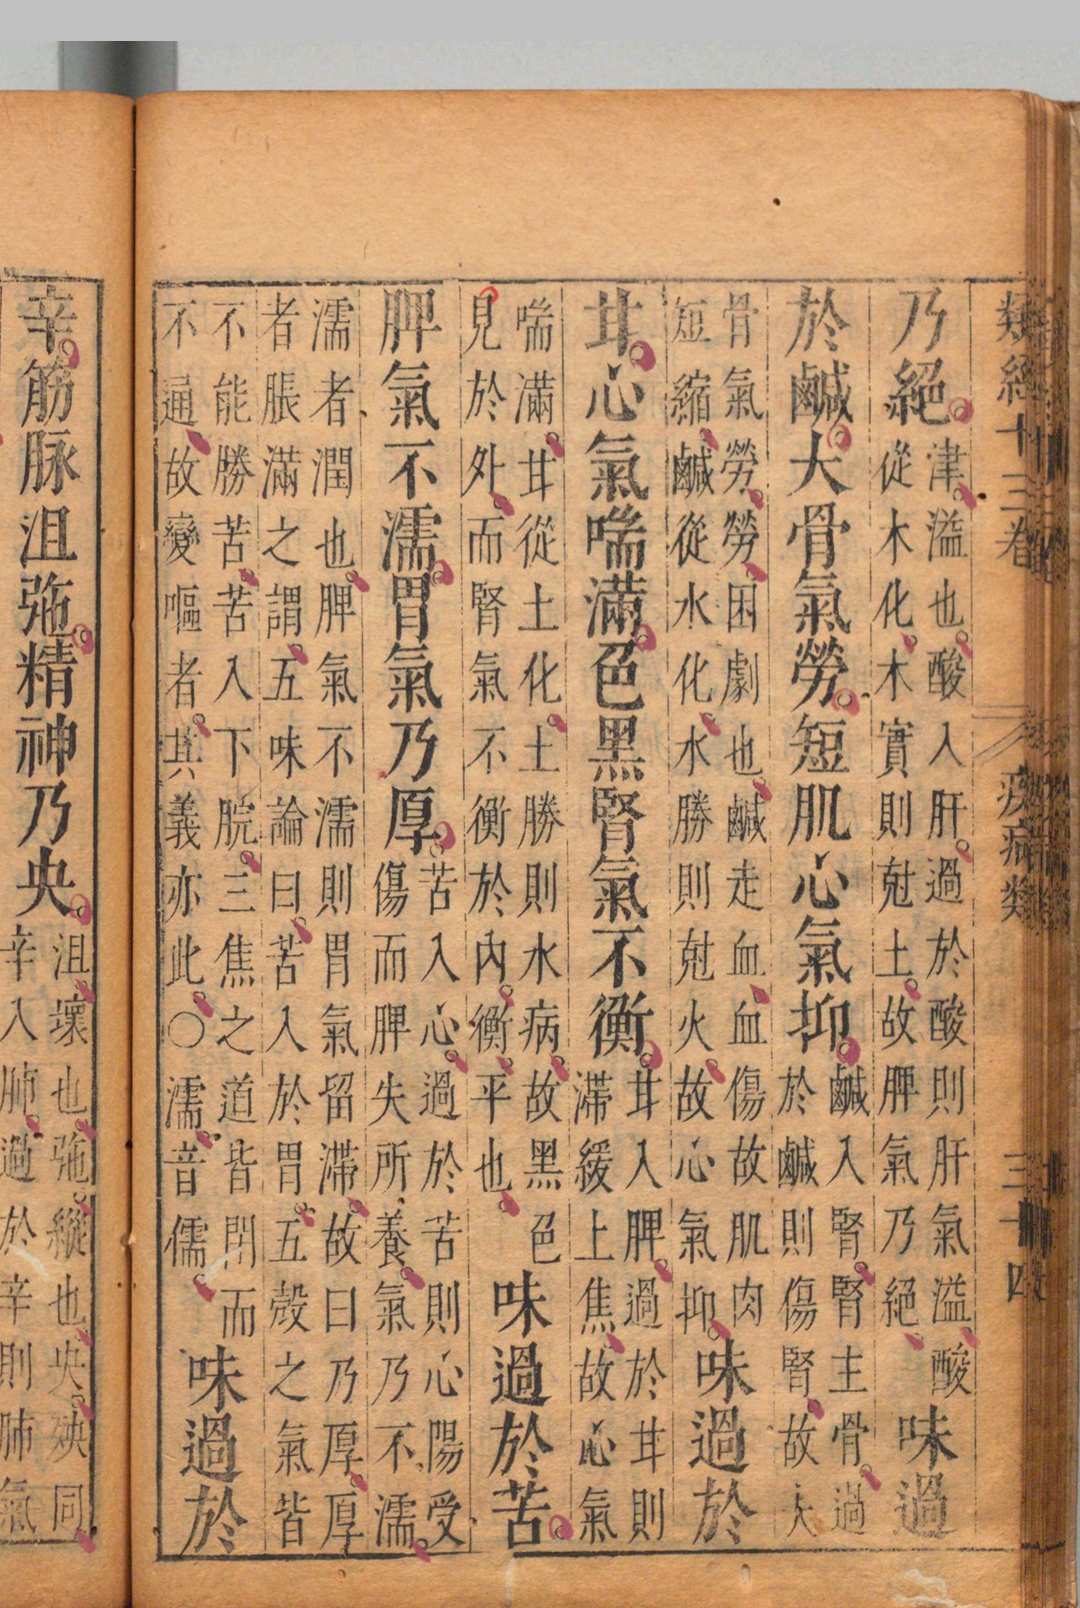 類經十三卷 疾病類 三十四
乃絕津溢也酸入肝過於酸則肝氣溢酸
從木化木實則尅土故脾氣乃絕味過
於鹹大骨氣勞短肌心氣抑鹹入腎腎主骨過
於鹹則傷腎故大
骨氣勞勞困劇也鹹走血血傷故肌肉
短縮鹹從水化水勝則尅火故心氣抑味過於
甘心氣喘滿色黑腎氣不衡甘入脾過於甘則
滯緩上焦故心氣
喘滿甘從土化土勝則水病故黑色
見於外而腎氣不衡於內衡平也味過於苦
脾氣不濡胃氣乃厚苦入心過於苦則心陽受
傷而脾失所養氣乃不濡
濡者潤也脾氣不濡則胃氣留滯故曰乃厚厚
者脹滿之謂五味論曰苦入於胃五穀之氣皆
不能勝苦苦入下脘三焦之道皆閉而
不通故變嘔者其義亦此○濡音儒味過於
辛筋脉沮弛精神乃央沮壞也弛縱也央殃同
辛入肺過於辛則肺氣